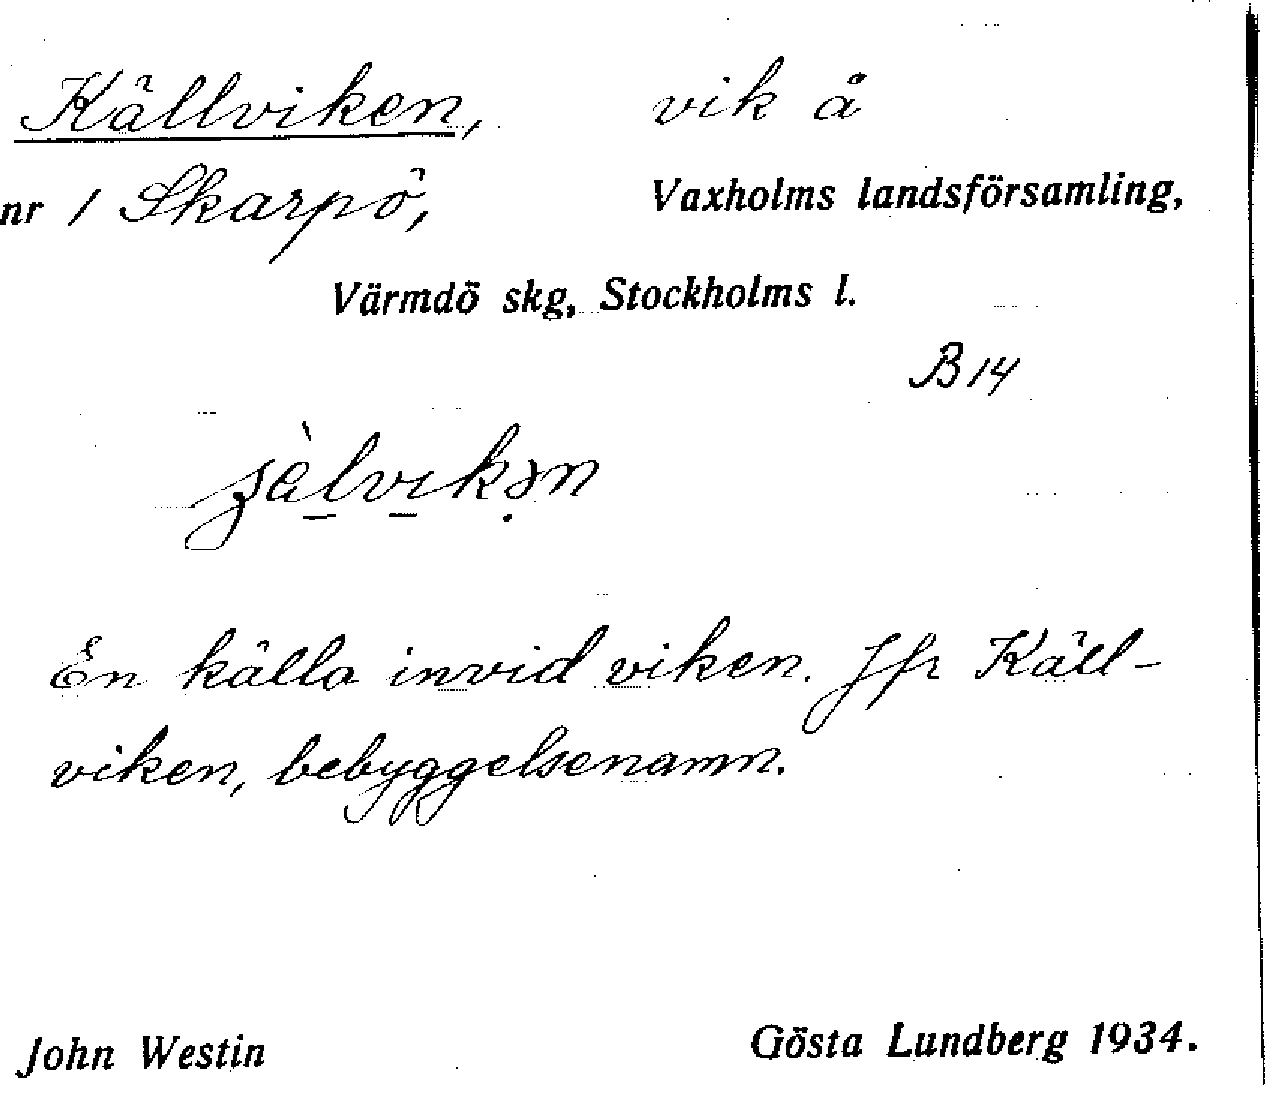 Källviken, vik å
nr 1 Skarpö, Vaxholms landsförsamling,
Värmdö skg, Stockholms l.
B 14
En källa invid viken. Jfr Käll-
viken, bebyggelsenamn.
John Westin Gösta Lundberg 1934.